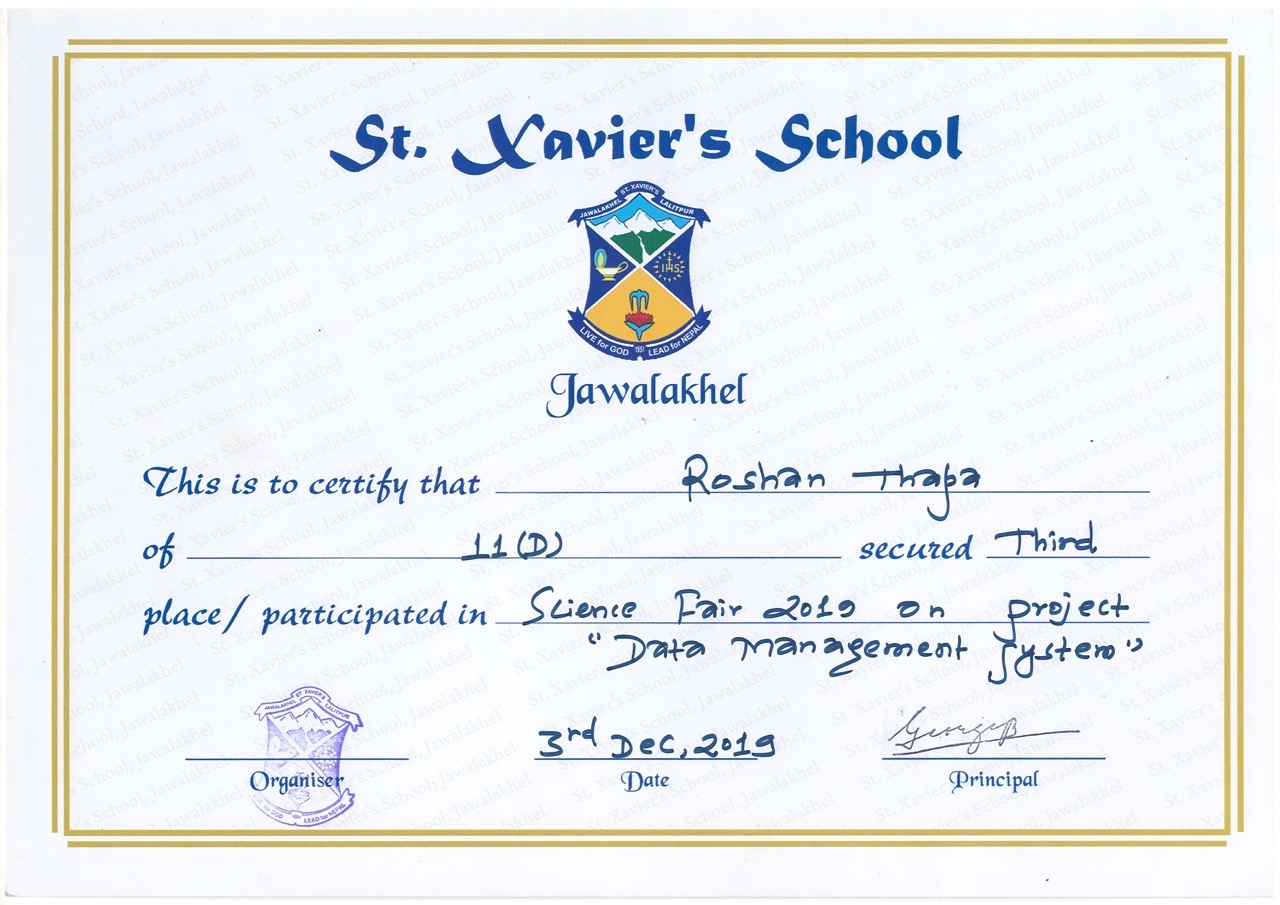 St. Xavier's School
JAWALAKHEL ST. XAVIER'S LALITPUR
IHS
LIVE for GOD 1951 LEAD for NEPAL
Jawalakhel
This is to certify that Roshan Thapa
of 11(D) secured Third
place/ participated in Science Fair 2019 on project
"Data Management System"
JAWALAKHEL ST. XAVIER'S LALITPUR
3rd Dec, 2019
Organiser Date Principal
LIVE for GOD 1951 LEAD for NEPAL